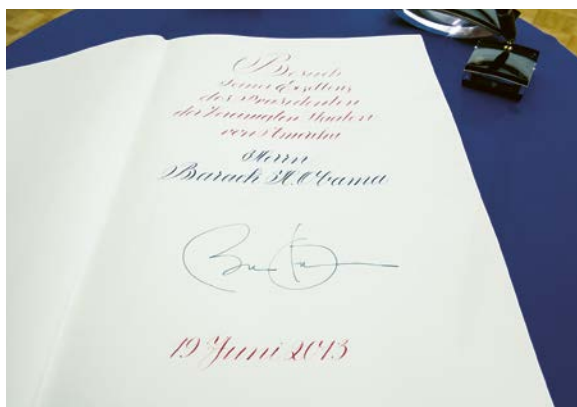 Besuch
Seiner Exzellenz
des Präsidenten
der Vereinigten Staaten
von Amerika
Herrn
Barack H. Obama
19 Juni 2013